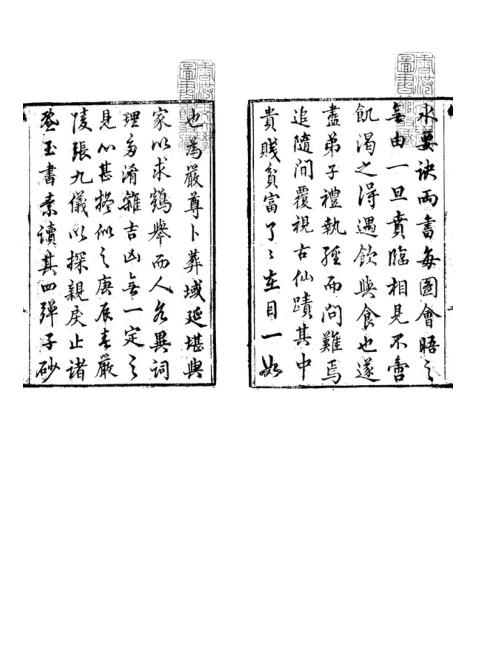 也為嚴尊卜葬域延堪輿
家以求鶴舉而人各異詞
理多淆雜吉凶無一定之
見心甚之庚辰春嚴
陵張九儀以探親戾止諸
玉書素讀其四彈子砂
水要訣兩書每圖會晤之
無由一旦賁臨相見不啻
飢渴之得遇飲與食也遂
盡弟子禮執經而問難焉
追隨間覆視古仙蹟其中
貴賤貧富了〻在目一如